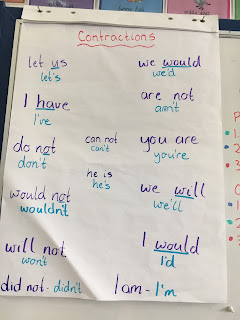 Contractions
let us
let's
I have
I've
do not
don't
would not
wouldn't
will not
won't
did not - didn't
can not
can't
he is
he's
we would
we'd
are not
aren't
you are
you're
we will
we'll
I would
I'd
I am - I'm